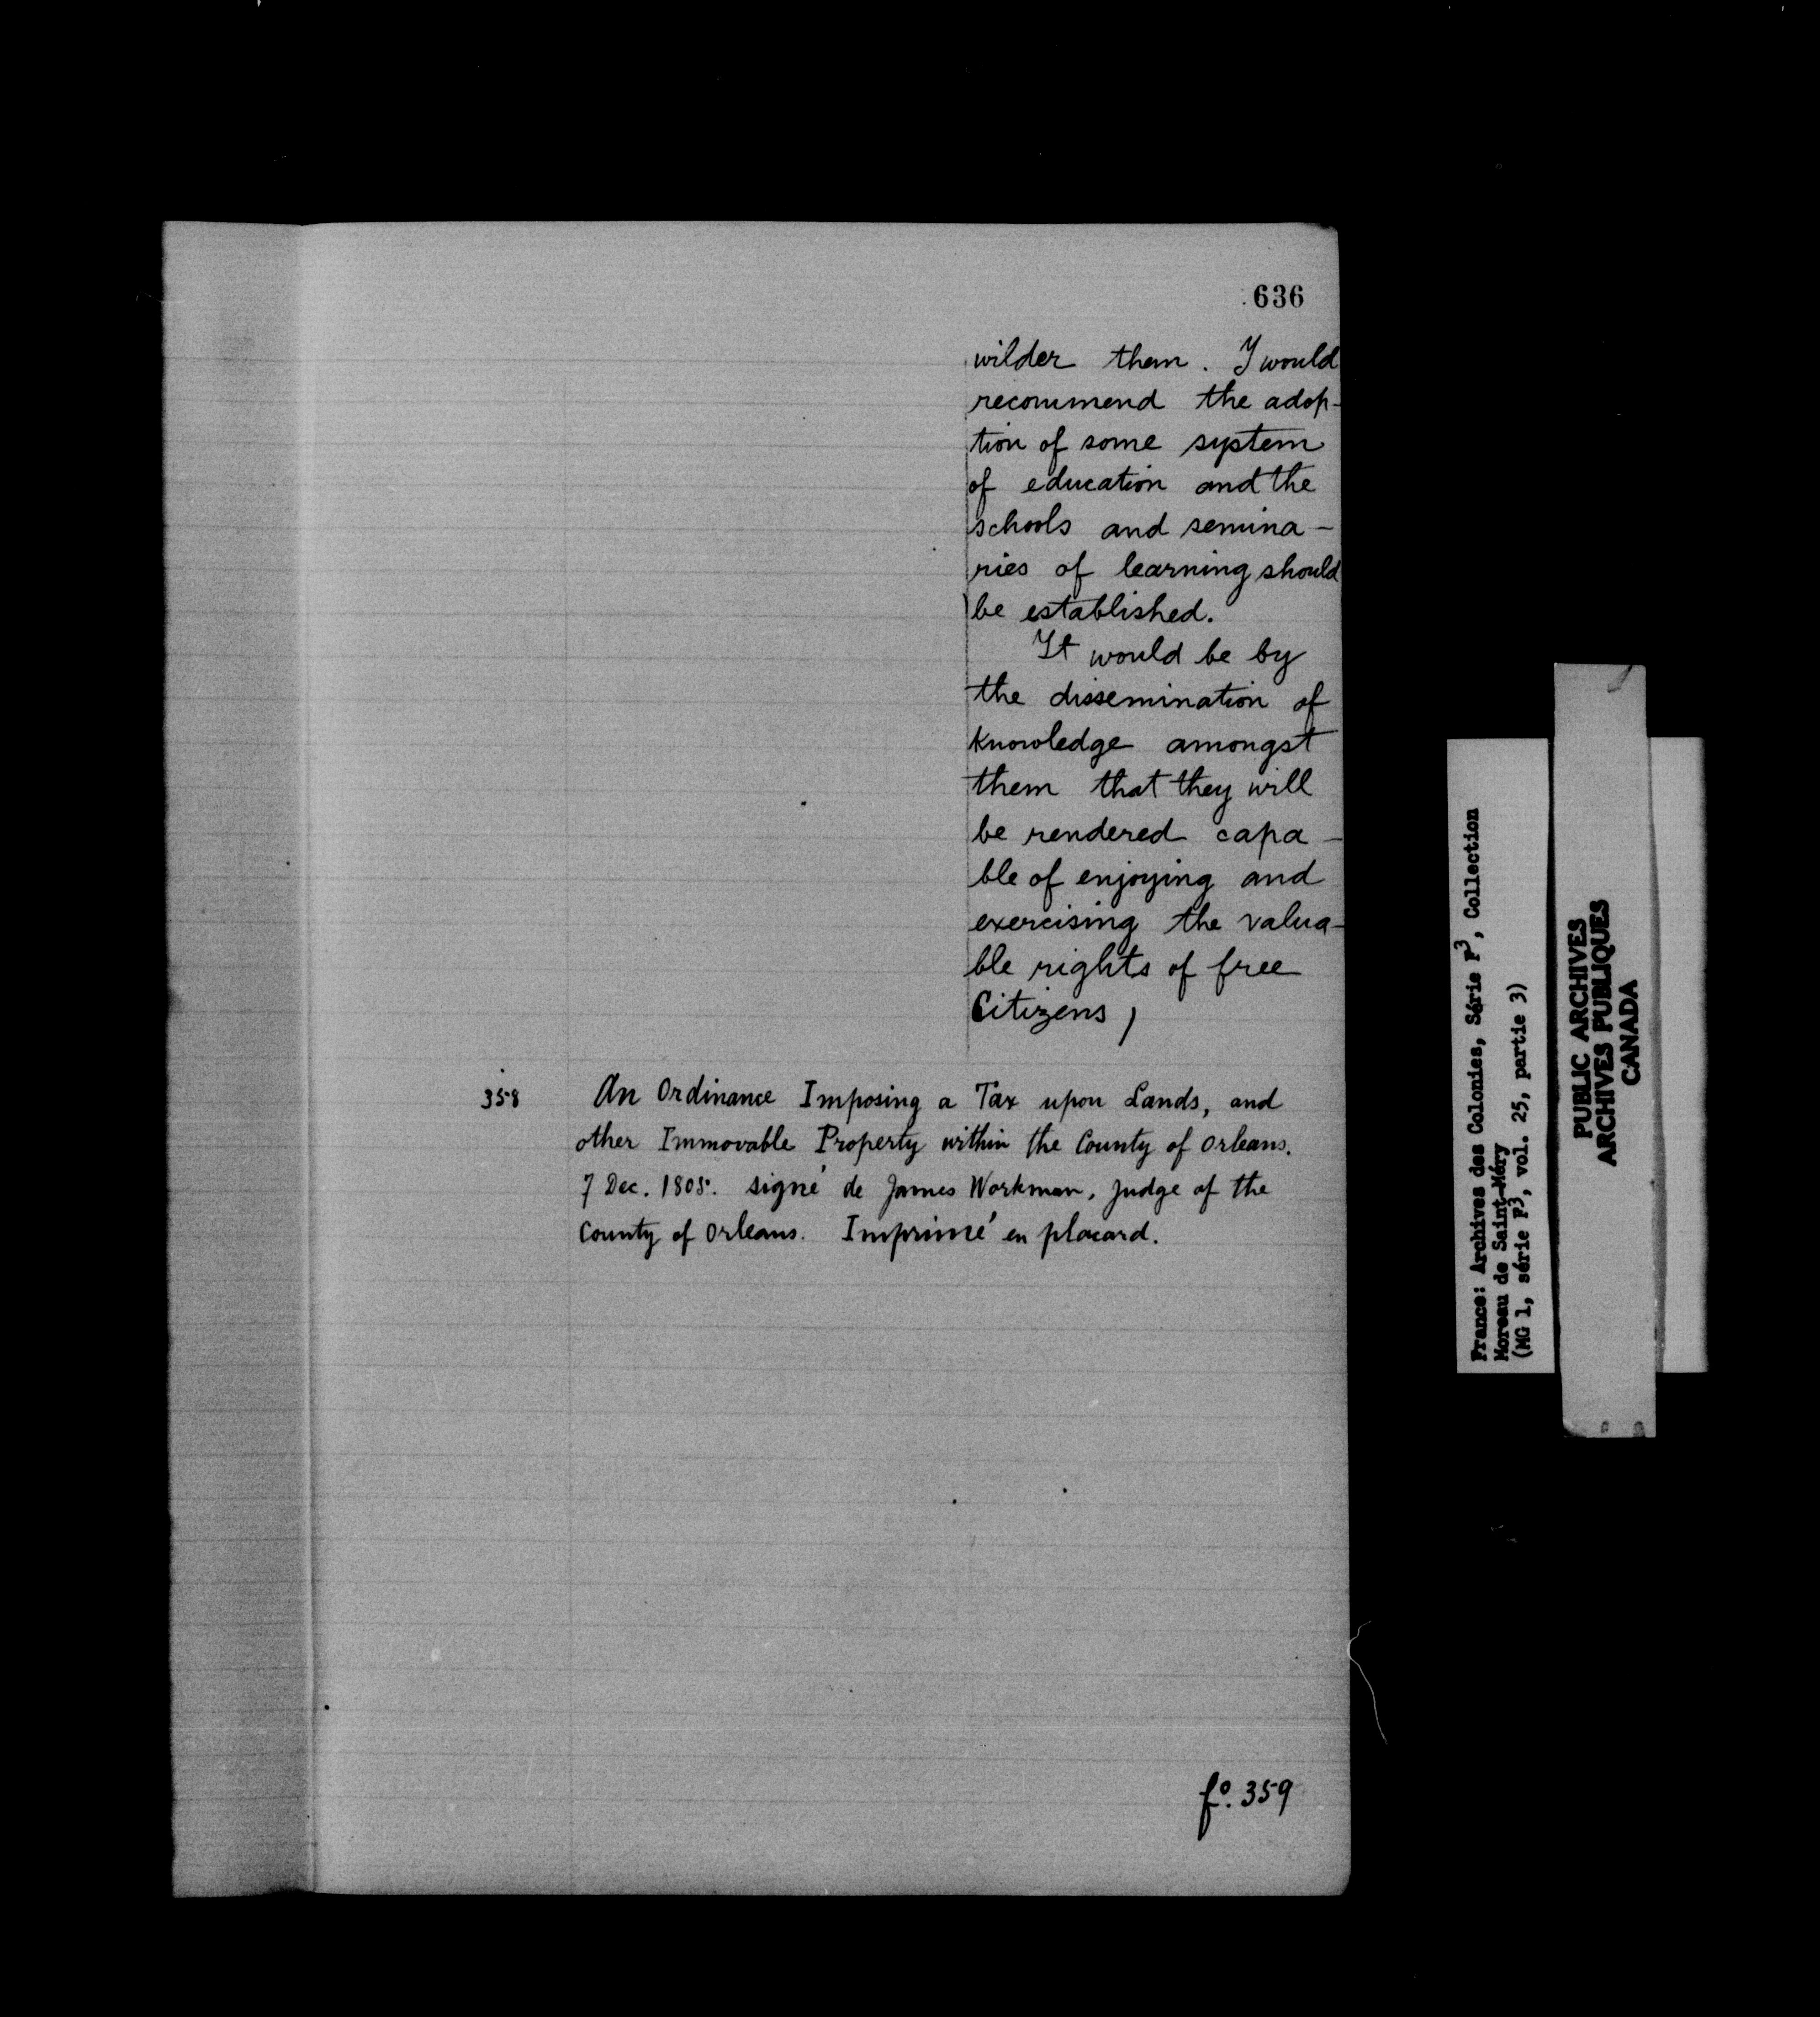 636
wilder them. I would
recommend the adop-
tion of some system
of education and the
schools and semina-
ries of learning should
be established.
It would be by
the dissemination of
knowledge amongst
them that they will
be rendered capa-
ble of enjoying and
exercising the valua-
ble rights of free
Citizens,
358 An Ordinance Imposing a Tax upon Lands, and
other Immovable Property within the County of Orleans.
7 Dec. 1805. signé de James Workman, Judge of the
County of Orleans. Imprimé en placard.
fo. 359
France: Archives des Colonies, Série F3, Collection
Moreau de Saint-Méry
(MG 1, série F3, vol. 25, partie 3)
PUBLIC ARCHIVES
ARCHIVES PUBLIQUES
CANADA